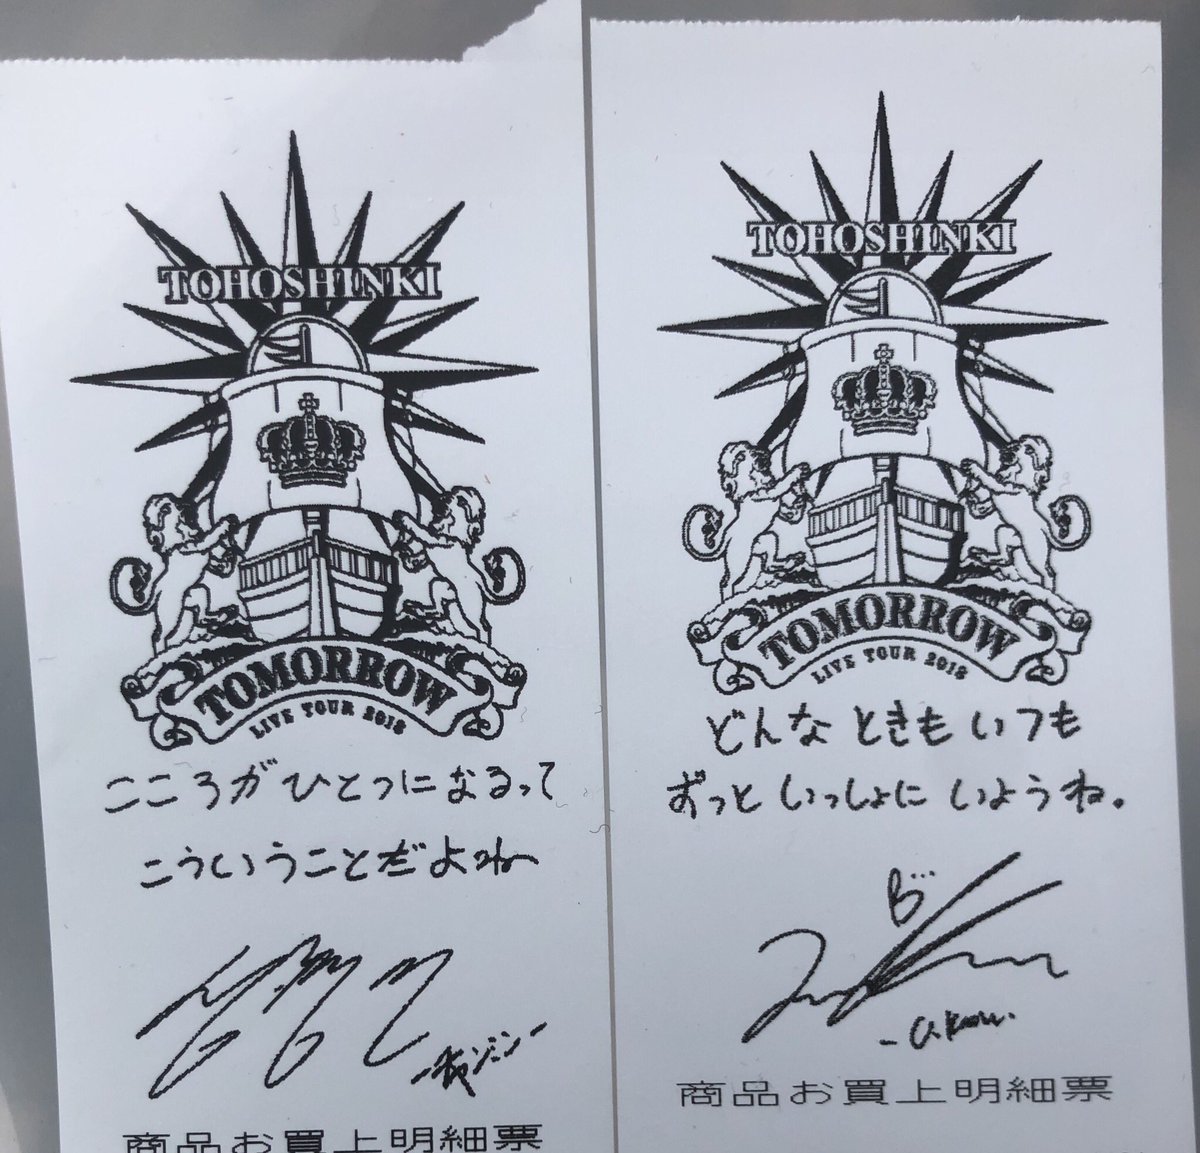 TOHOSHINKI
TOMORROW
LIVE TOUR 2018
こころがひとつになるって
こういうことだよね
商品お買上明細票
TOHOSHINKI
TOMORROW
LIVE TOUR 2018
どんなときもいつも
ずっといっしょにいようね。
商品お買上明細票